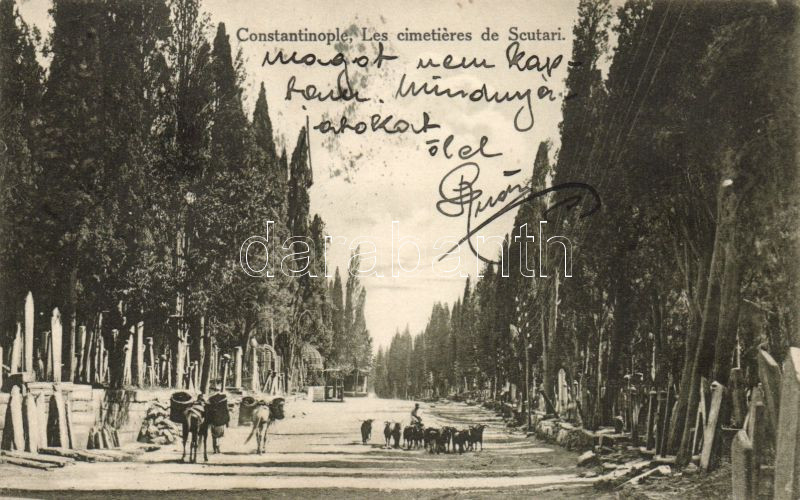 Constantinople, Les cimetières de Scutari.
magot nem kap-
tam. Mindnyá-
jatokat
ölel
darabanth